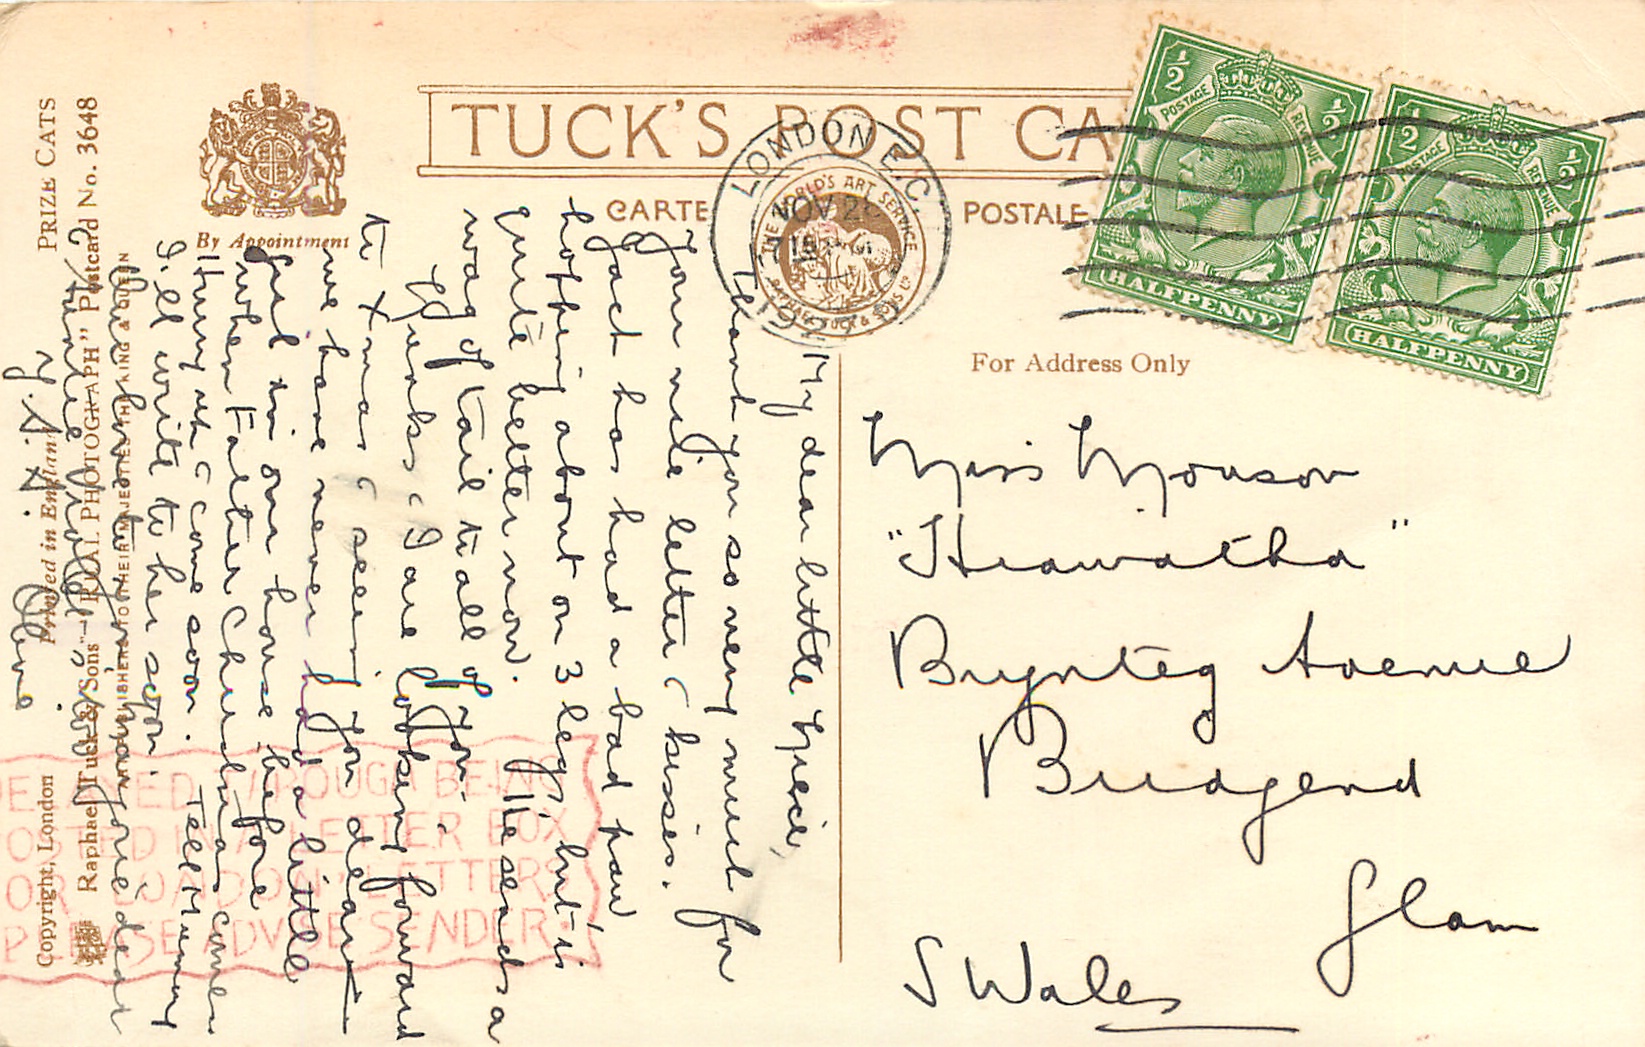 TUCK'S POST CA
CARTE POSTALE
By Appointment
For Address Only
LONDON E.C.
NOV 2
THE WORLD'S ART SERVICE
RAPHAEL TUCK & SONS LTD
½ ½
POSTAGE REVENUE
HALFPENNY
½ ½
POSTAGE REVENUE
HALFPENNY
Miss Monson
"Hiawatha"
Brynteg Avenue
Bridgend
Glam
S Wales
My dear little Niece,
Thank you so very much for
your nice letter & kisses.
Jack has had a bad paw
hopping about on 3 legs but is
quite better now. He sends a
wag of tail to all of you.
Hunks & I are looking forward
to Xmas & seeing you dear
we have never had a little
girl in our house before
when Father Christmas comes
Hurry up & come soon. Tell Mummy
I'll write to her soon.
dear
Olive
PRIZE CATS
Raphael Tuck & Sons' "REAL PHOTOGRAPH" Postcard No. 3648
PUBLISHERS TO THEIR MAJESTIES THE KING & QUEEN
Copyright, London Printed in England
DELAYED THROUGH BEING
POSTED IN A LETTER BOX
FOR "LONDON" LETTERS
PLEASE ADVISE SENDER.